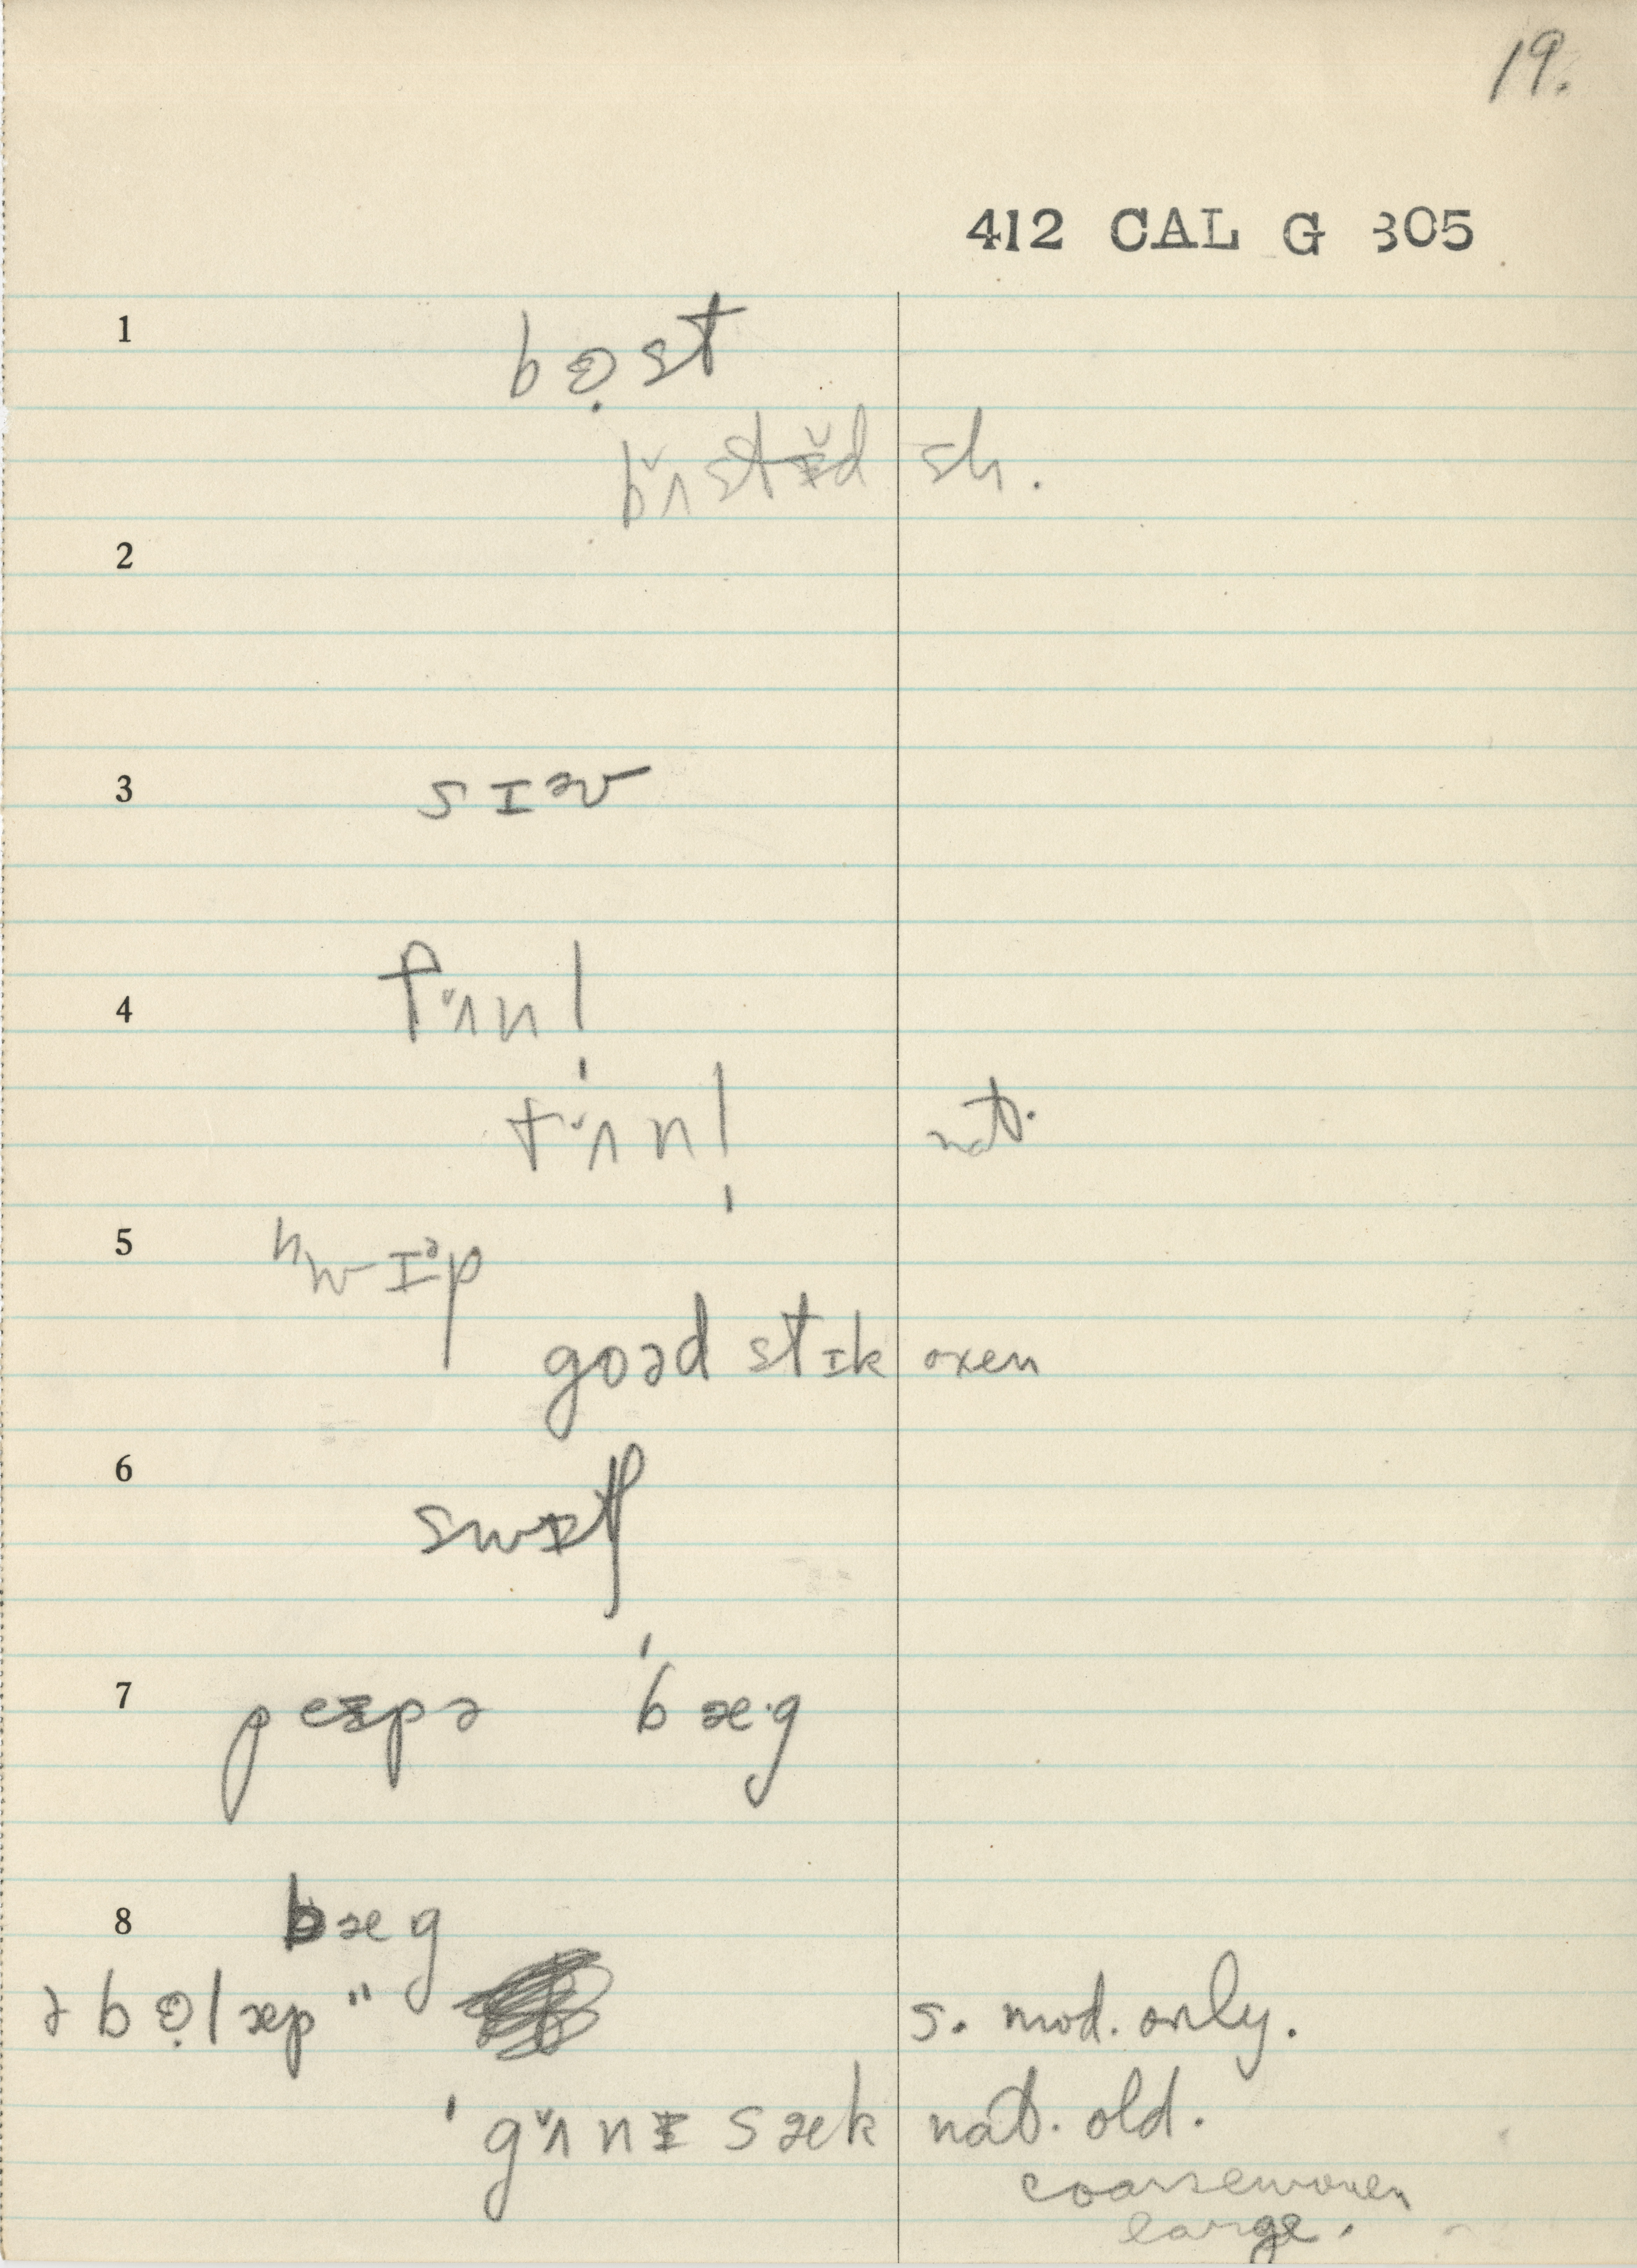 19.
412 CAL G 305
1 bɵ̣st
bʌ̆stᵻ̆d sh.
2
3 sɪəʊ
4 fʌ̆nl̩
tʌ̆nl̩ nat.
5 ʍɪᵊp
goəd stɪk oxen
6
7 peᵻpə ˈbæ·g
8 bæg
ə bɵ̣læp " s. mod. only.
ˈgʌ̆nᵻ sæk nat. old.
coarsewoven
large.